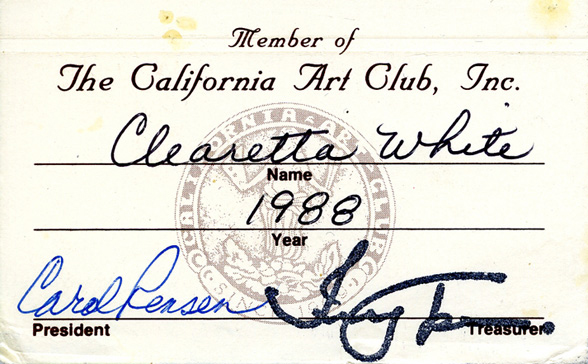 Member of
The California Art Club, Inc.
Clearetta White
Name
CALIFORNIA ART CLUB
1988
Year
Carol
President Treasurer